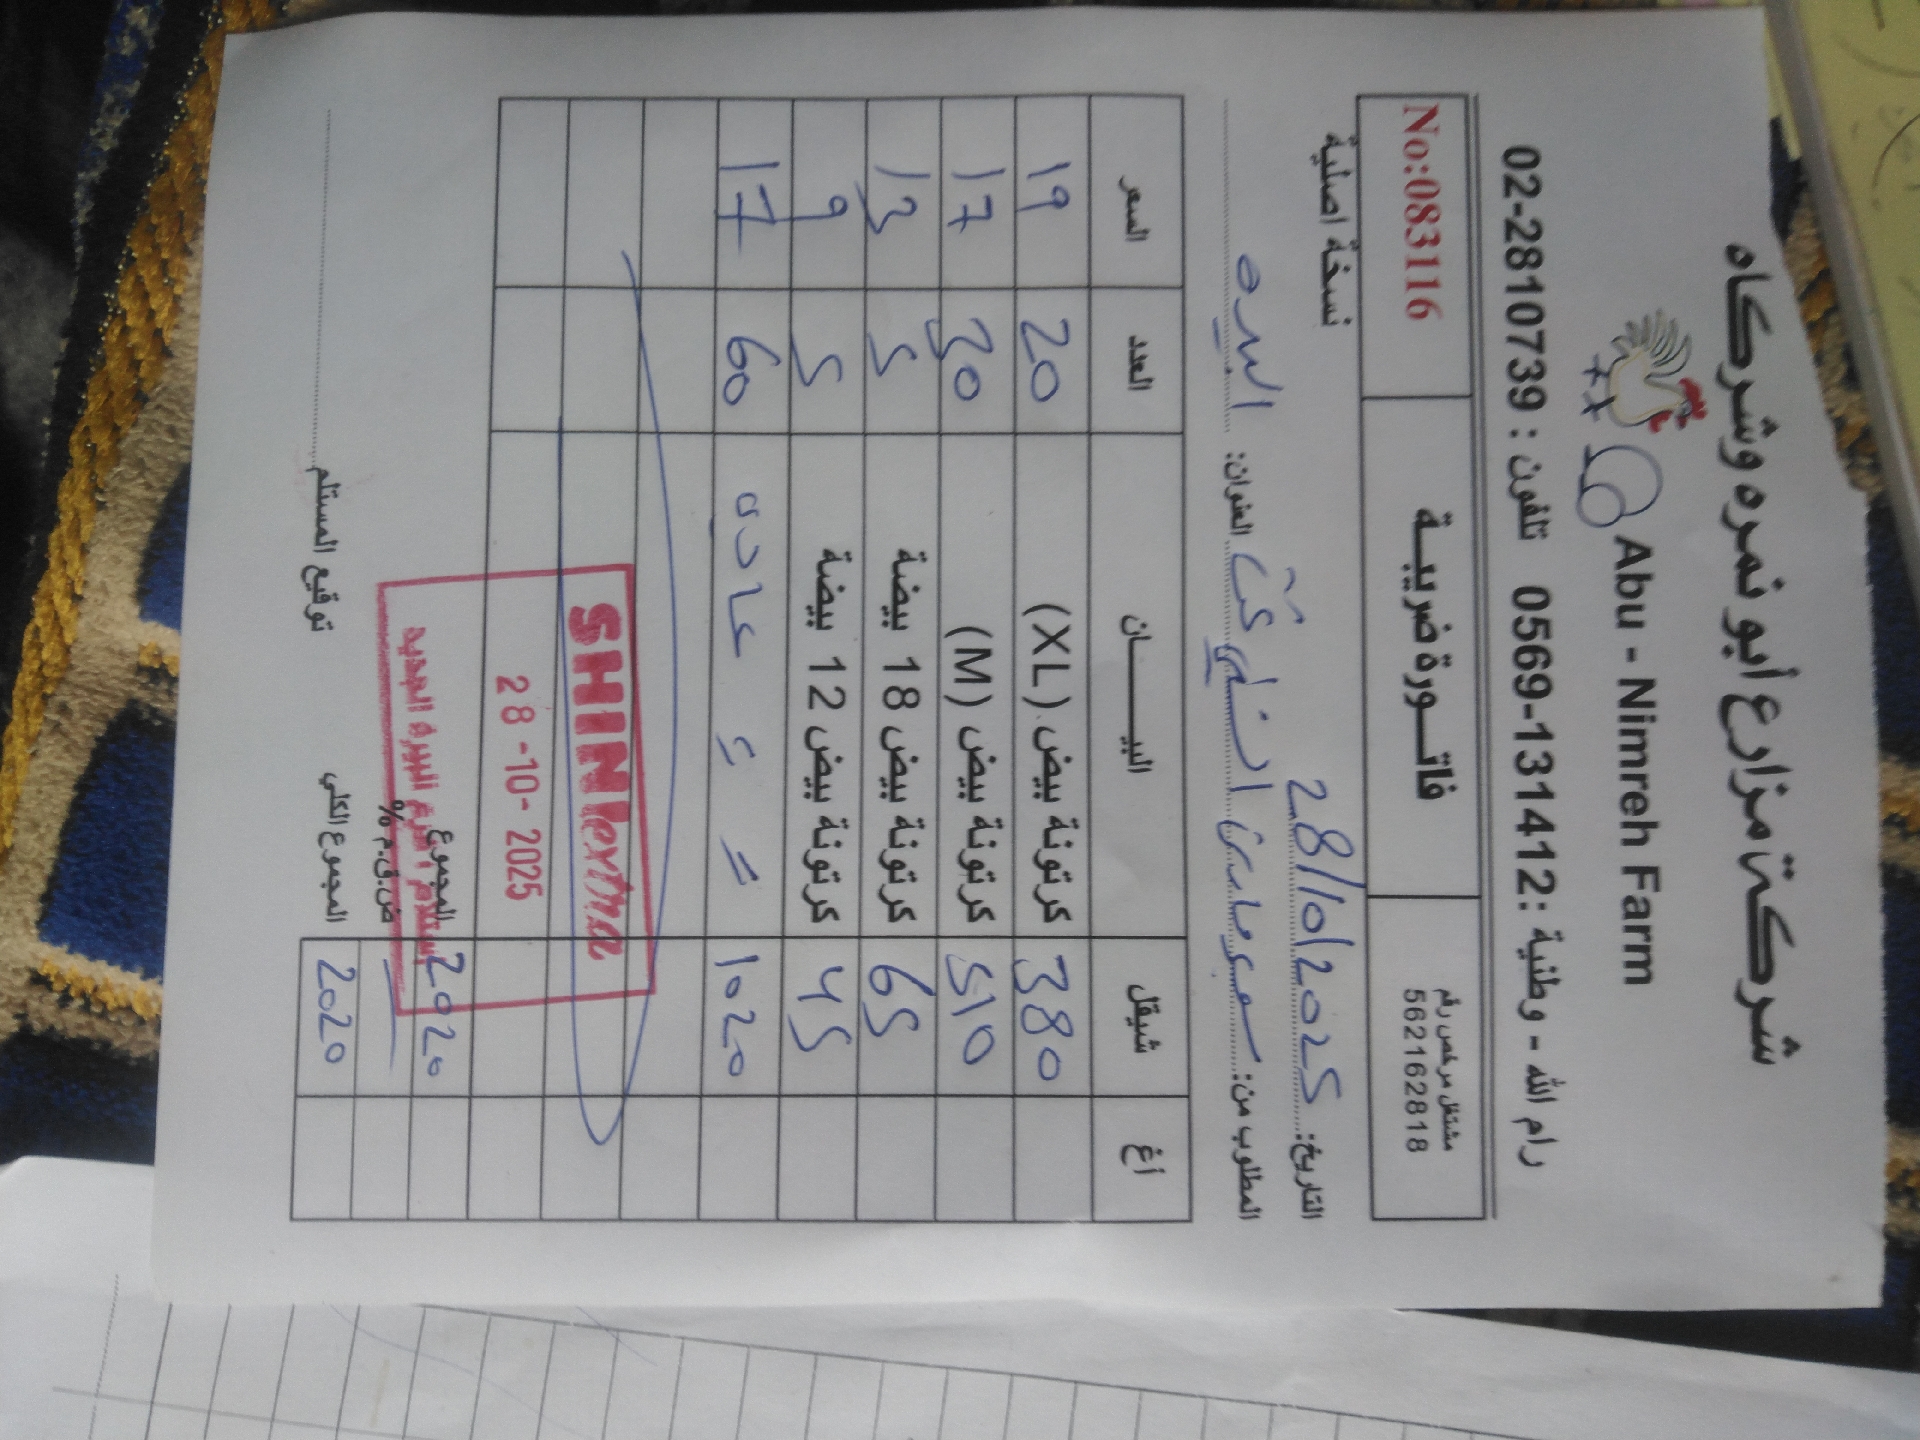 شركة مزارع أبو نمره وشركاه
Abu - Nimreh Farm
رام الله - وطنية : 0569-131412 تلفون : 02-2810739
مشتغل مرخص رقم
562162818
فاتـــورة ضريبــة
No:083116
التاريخ: 28/10/2025
نسخة اصلية
المطلوب من: العنوان: البيره
أغ شيقل البيـــــان العدد السعر
380 كرتونة بيض (XL) 20 19
510 كرتونة بيض (M) 30 17
65 كرتونة بيض 18 بيضة 5 13
45 كرتونة بيض 12 بيضة 5 9
1020 = = عادي 60 17
SHINIextra
28-10-2025
استلام فرع البيرة الجديد
المجموع 2020
ض.ق.م % —
المجموع الكلي 2020
توقيع المستلم